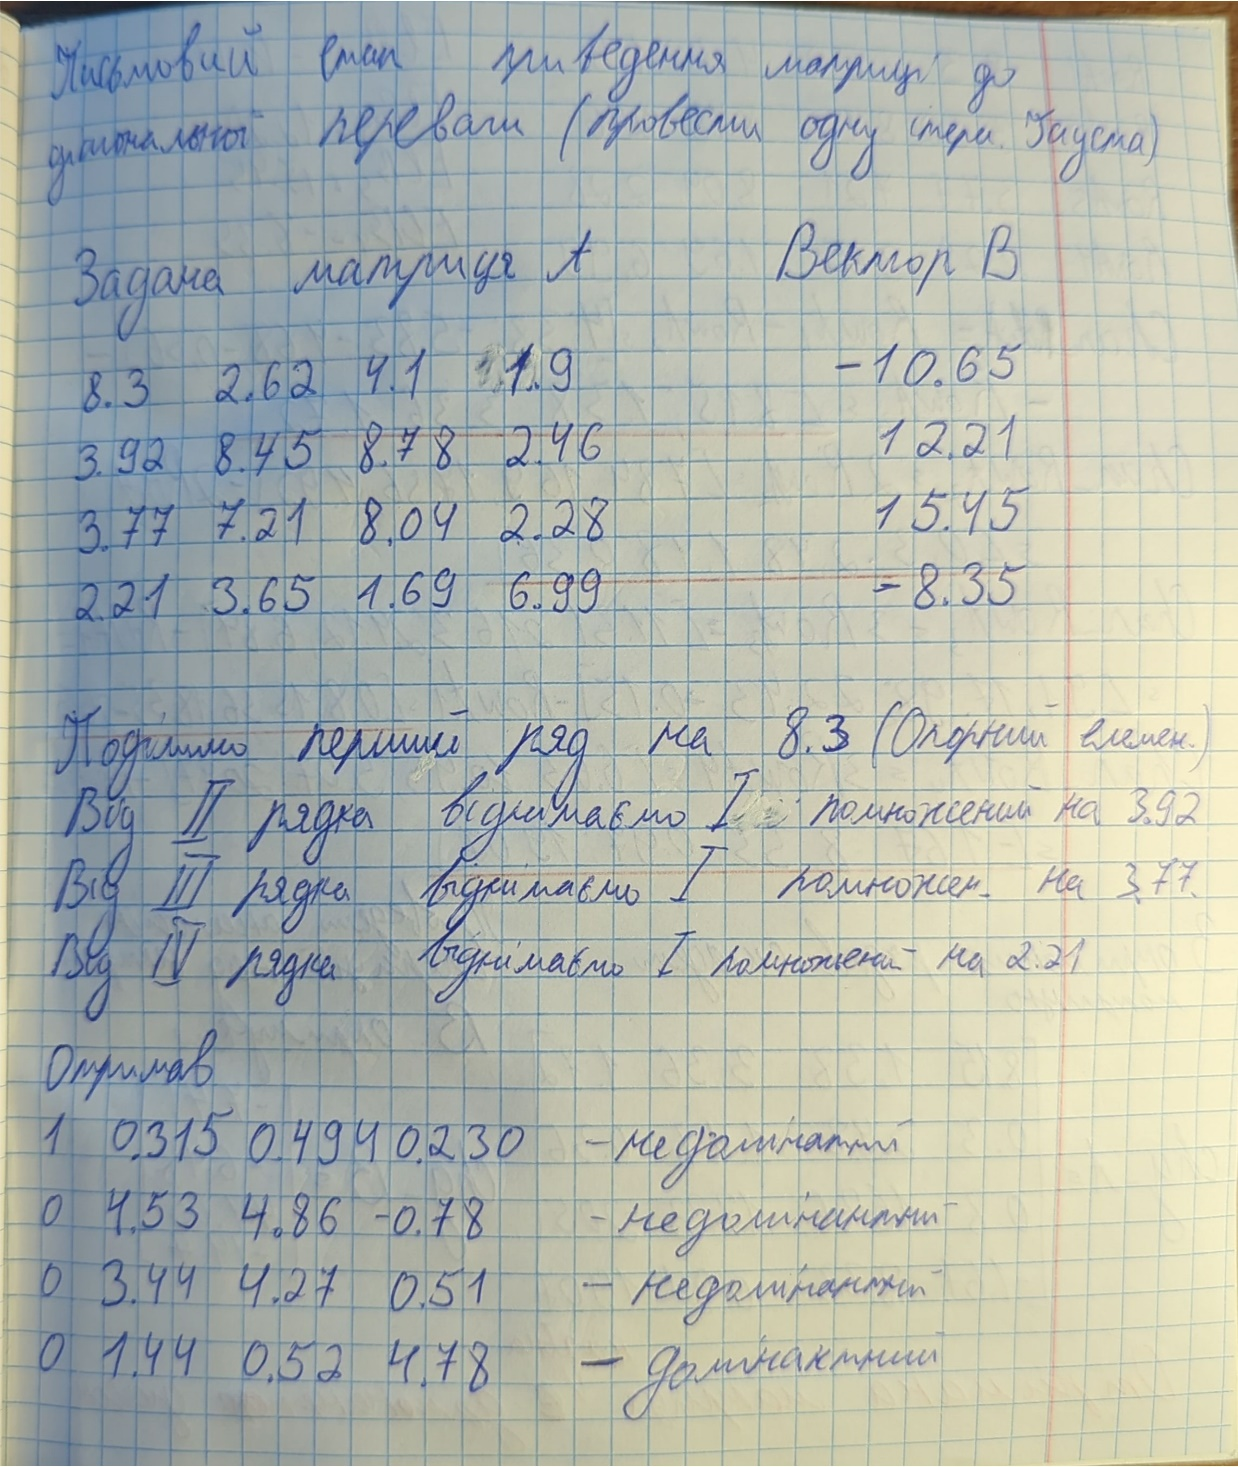 Письмовий етап приведення матриці до
діагональної переваги (провести одну ітера. Гауста)
Задана матриця A Вектор B
8.3 2.62 4.1 1.9 -10.65
3.92 8.45 8.78 2.46 12.21
3.77 7.21 8.04 2.28 15.45
2.21 3.65 1.69 6.99 -8.35
Поділимо перший ряд на 8.3 (Опорний елемен.)
Від II рядка віднімаємо I помножений на 3.92
Від III рядка віднімаємо I помножен. на 3.77.
Від IV рядка віднімаємо I помножений на 2.21
Отримав
1 0.315 0.494 0.230 - недомінатний
0 4.53 4.86 -0.78 - недомінантний
0 3.44 4.27 0.51 - недомінантний
0 1.44 0.52 4.78 - домінантний